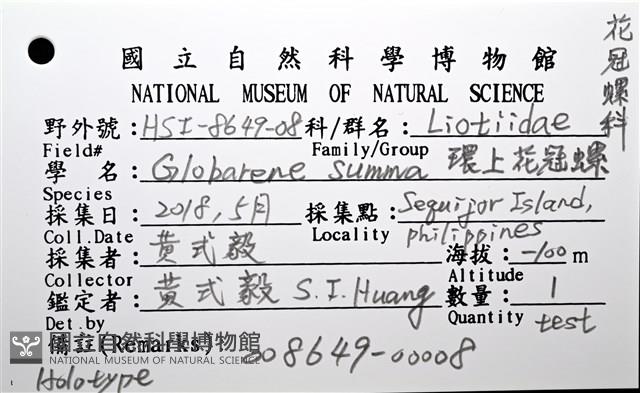 花冠螺科
國立自然科學博物館
NATIONAL MUSEUM OF NATURAL SCIENCE
野外號：HSI-8649-08 科/群名：Liotiidae
Field# Family/Group
學名：Globarene summa 環上花冠螺
Species
採集日：2018,5月 採集點：Sequijor Island,
Coll.Date Locality philippines
採集者：黃式毅 海拔：-100m
Collector Altitude
鑑定者：黃式毅 S.I.Huang 數量：1
Det.by Quantity test
備註(Remarks) 008649-00008
國立自然科學博物館
NATIONAL MUSEUM OF NATURAL SCIENCE
Holotype